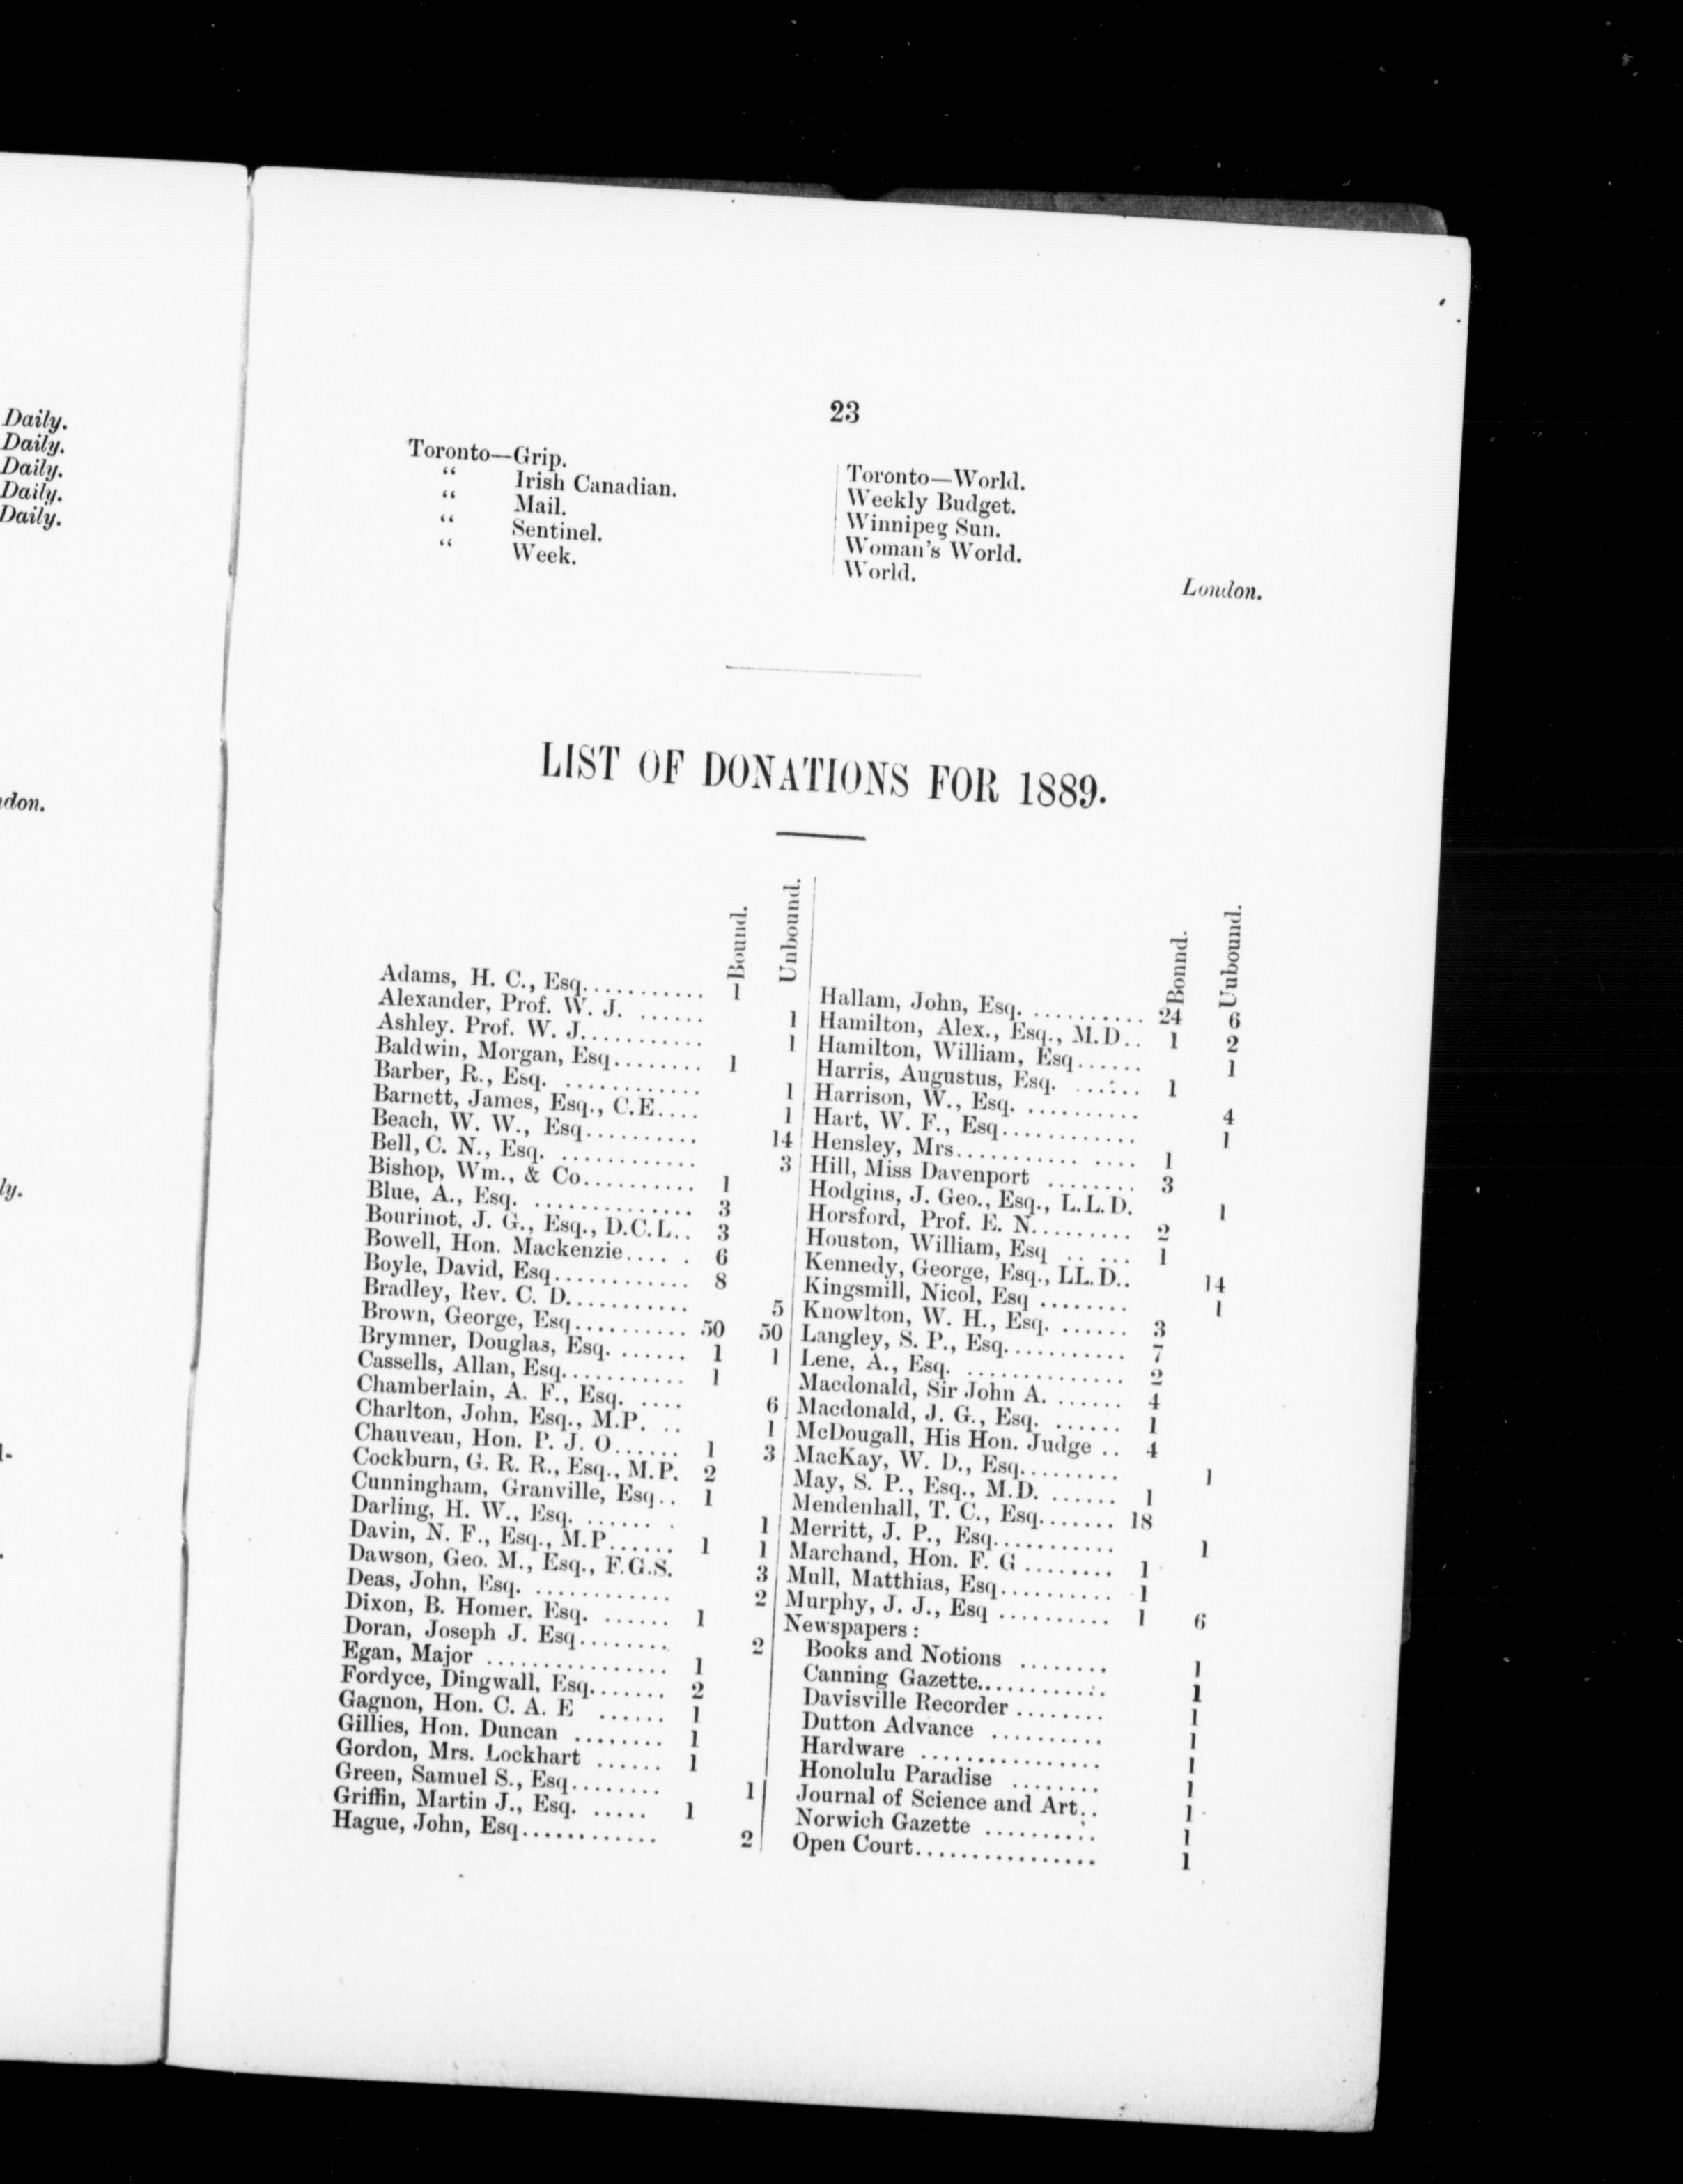 Daily.
Daily.
Daily.
Daily.
Daily.
don.
ly.
23
Toronto—Grip.
“ Irish Canadian.
“ Mail.
“ Sentinel.
“ Week.
Toronto—World.
Weekly Budget.
Winnipeg Sun.
Woman's World.
World. London.
LIST OF DONATIONS FOR 1889.
Bound. Unbound.
Adams, H. C., Esq........... 1
Alexander, Prof. W. J. ...... 1
Ashley. Prof. W. J........... 1
Baldwin, Morgan, Esq........ 1
Barber, R., Esq. ............ 1
Barnett, James, Esq., C.E.... 1
Beach, W. W., Esq.......... 14
Bell, C. N., Esq. ............ 3
Bishop, Wm., & Co.......... 1
Blue, A., Esq. .............. 3
Bourinot, J. G., Esq., D.C.L.. 3
Bowell, Hon. Mackenzie.... . 6
Boyle, David, Esq............ 8
Bradley, Rev. C. D........... 5
Brown, George, Esq.......... 50 50
Brymner, Douglas, Esq. ...... 1 1
Cassells, Allan, Esq........... 1
Chamberlain, A. F., Esq. .... 6
Charlton, John, Esq., M.P. .. 1
Chauveau, Hon. P. J. O...... 1 3
Cockburn, G. R. R., Esq., M.P. 2
Cunningham, Granville, Esq.. 1
Darling, H. W., Esq. ...... . 1
Davin, N. F., Esq., M.P...... 1 1
Dawson, Geo. M., Esq., F.G.S. 3
Deas, John, Esq. ............ 2
Dixon, B. Homer. Esq. ...... 1
Doran, Joseph J. Esq........ 2
Egan, Major ................ 1
Fordyce, Dingwall, Esq....... 2
Gagnon, Hon. C. A. E ...... 1
Gillies, Hon. Duncan ........ 1
Gordon, Mrs. Lockhart ...... 1
Green, Samuel S., Esq........ 1
Griffin, Martin J., Esq. ..... 1
Hague, John, Esq............ 2
Bonnd. Unbound.
Hallam, John, Esq. .......... 24 6
Hamilton, Alex., Esq., M.D.. 1 2
Hamilton, William, Esq...... 1
Harris, Augustus, Esq. ...... 1
Harrison, W., Esq. .......... 4
Hart, W. F., Esq............ 1
Hensley, Mrs........... .... 1
Hill, Miss Davenport ........ 3
Hodgins, J. Geo., Esq., L.L.D. 1
Horsford, Prof. E. N......... 2
Houston, William, Esq .. ... 1
Kennedy, George, Esq., LL.D.. 14
Kingsmill, Nicol, Esq ........ 1
Knowlton, W. H., Esq. ...... 3
Langley, S. P., Esq........... 7
Lene, A., Esq. .............. 2
Macdonald, Sir John A. ...... 4
Macdonald, J. G., Esq. ...... 1
McDougall, His Hon. Judge .. 4
MacKay, W. D., Esq......... 1
May, S. P., Esq., M.D. ...... 1
Mendenhall, T. C., Esq....... 18
Merritt, J. P., Esq........... 1
Marchand, Hon. F. G ........ 1
Mull, Matthias, Esq.......... 1
Murphy, J. J., Esq .......... 1 6
Newspapers :
Books and Notions ........ 1
Canning Gazette............ 1
Davisville Recorder ........ 1
Dutton Advance .......... 1
Hardware ................ 1
Honolulu Paradise ........ 1
Journal of Science and Art.. 1
Norwich Gazette .......... 1
Open Court................ 1